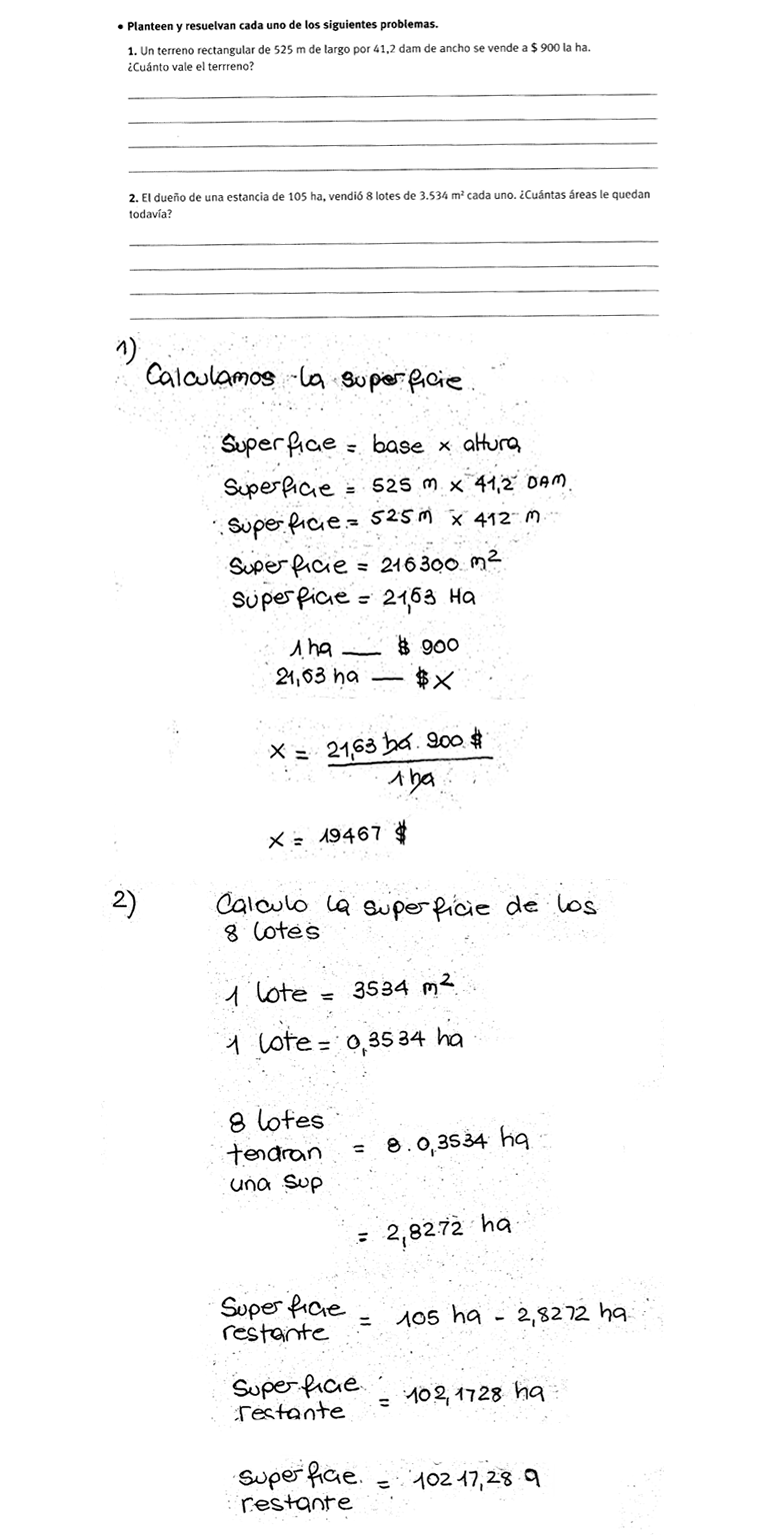 • Planteen y resuelvan cada uno de los siguientes problemas.
1. Un terreno rectangular de 525 m de largo por 41,2 dam de ancho se vende a $ 900 la ha.
¿Cuánto vale el terrreno?
2. El dueño de una estancia de 105 ha, vendió 8 lotes de 3.534 m² cada uno. ¿Cuántas áreas le quedan
todavía?
1)
Calculamos la superficie.
Superficie = base x altura
Superficie = 525 m x 41,2 DAM.
Superficie = 525 m x 412 m
Superficie = 216300 m²
Superficie = 21,63 Ha
1 ha — $ 900
21,63 ha — $ X
X = 21,63 ha . 900 $
1 ha
X = 19467 $
2) Calculo la superficie de los
8 lotes
1 lote = 3534 m²
1 lote = 0,3534 ha
8 lotes
tendran = 8 . 0,3534 ha
una sup
= 2,8272 ha
Superficie = 105 ha - 2,8272 ha
restante
Superficie = 102,1728 ha
restante
Superficie = 10217,28 a
restante